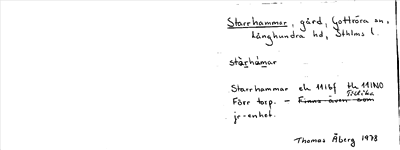 Starrhammar, gård, Gottröra sn,
Långhundra hd, Sthlms l.
stàrhàmar
Starrhammar ek 11I6f fk 11INO
Förr torp. – Finns även som
jr-enhet.
Thomas Åberg 1978